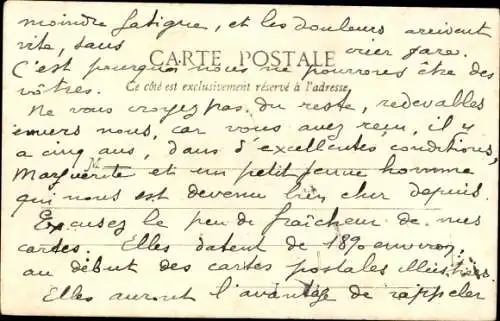 moindre fatigue, et les douleurs arrivent
vite, sans crier gare.
CARTE POSTALE
C'est pourquoi nous ne pourrons être des
vôtres.
Ce côté est exclusivement réservé à l'adresse
Ne vous croyez pas, du reste, redevables
envers nous, car vous avez reçu, il y
a cinq ans, dans d'excellentes conditions,
M
Marguerite et un petit jeune homme
qui nous est devenu bien cher depuis.
Excusez le peu de fraîcheur de mes
cartes. Elles datent de 1890 environ,
au début des cartes postales illustrées.
Elles auront l'avantage de rappeler